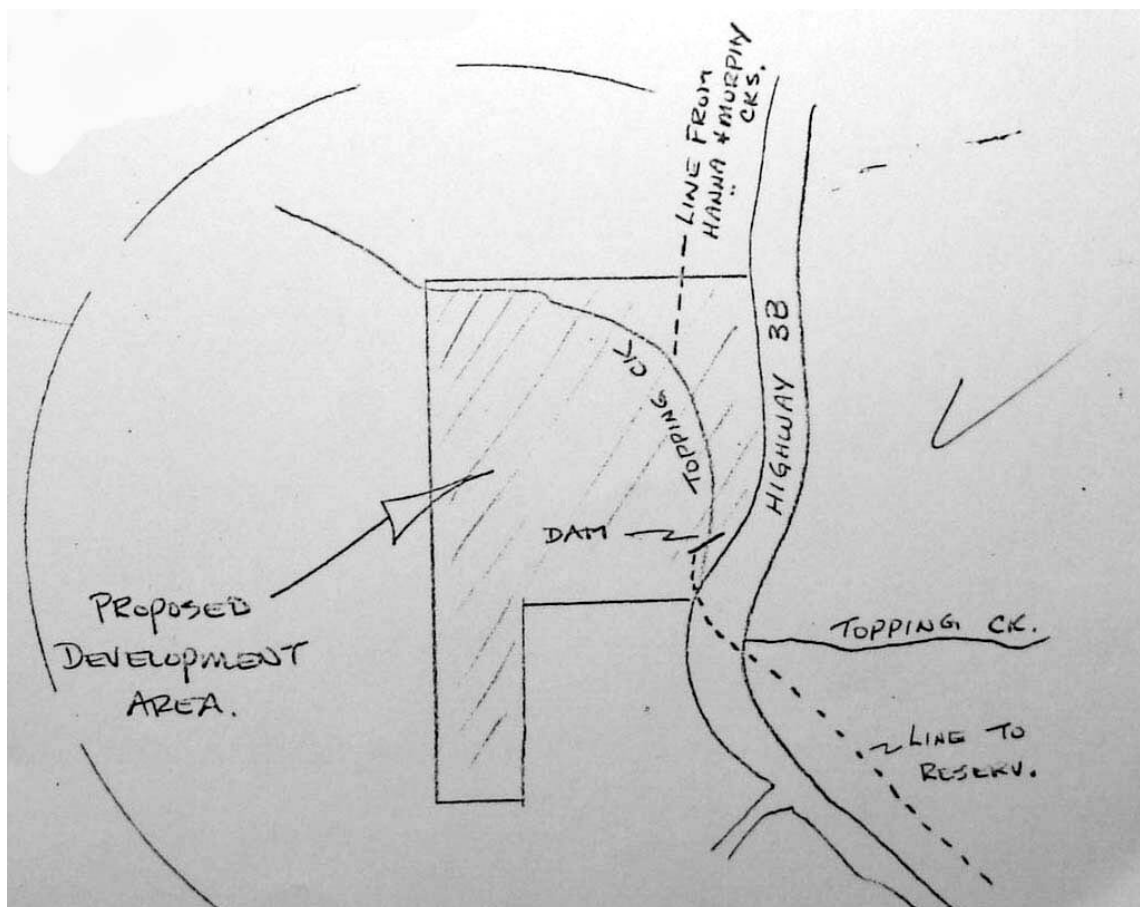 LINE FROM
HANNA & MURPHY
CKS.
HIGHWAY 3B
TOPPING CK
DAM
PROPOSED
DEVELOPMENT
AREA.
TOPPING CK.
LINE TO
RESERV.